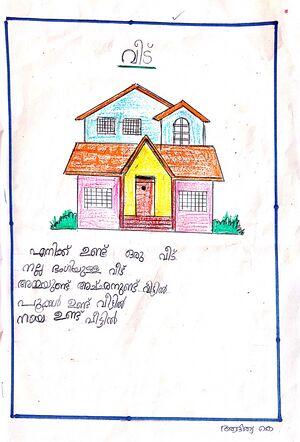 വീട്
എനിക്ക് ഉണ്ട് ഒരു വീട്
നല്ല ഭംഗിയുള്ള വീട്
അമ്മയുണ്ട് അച്ഛനുണ്ട് വീട്ടിൽ
പൂക്കൾ ഉണ്ട് വീട്ടിൽ
നായ ഉണ്ട് വീട്ടിൽ
കെ